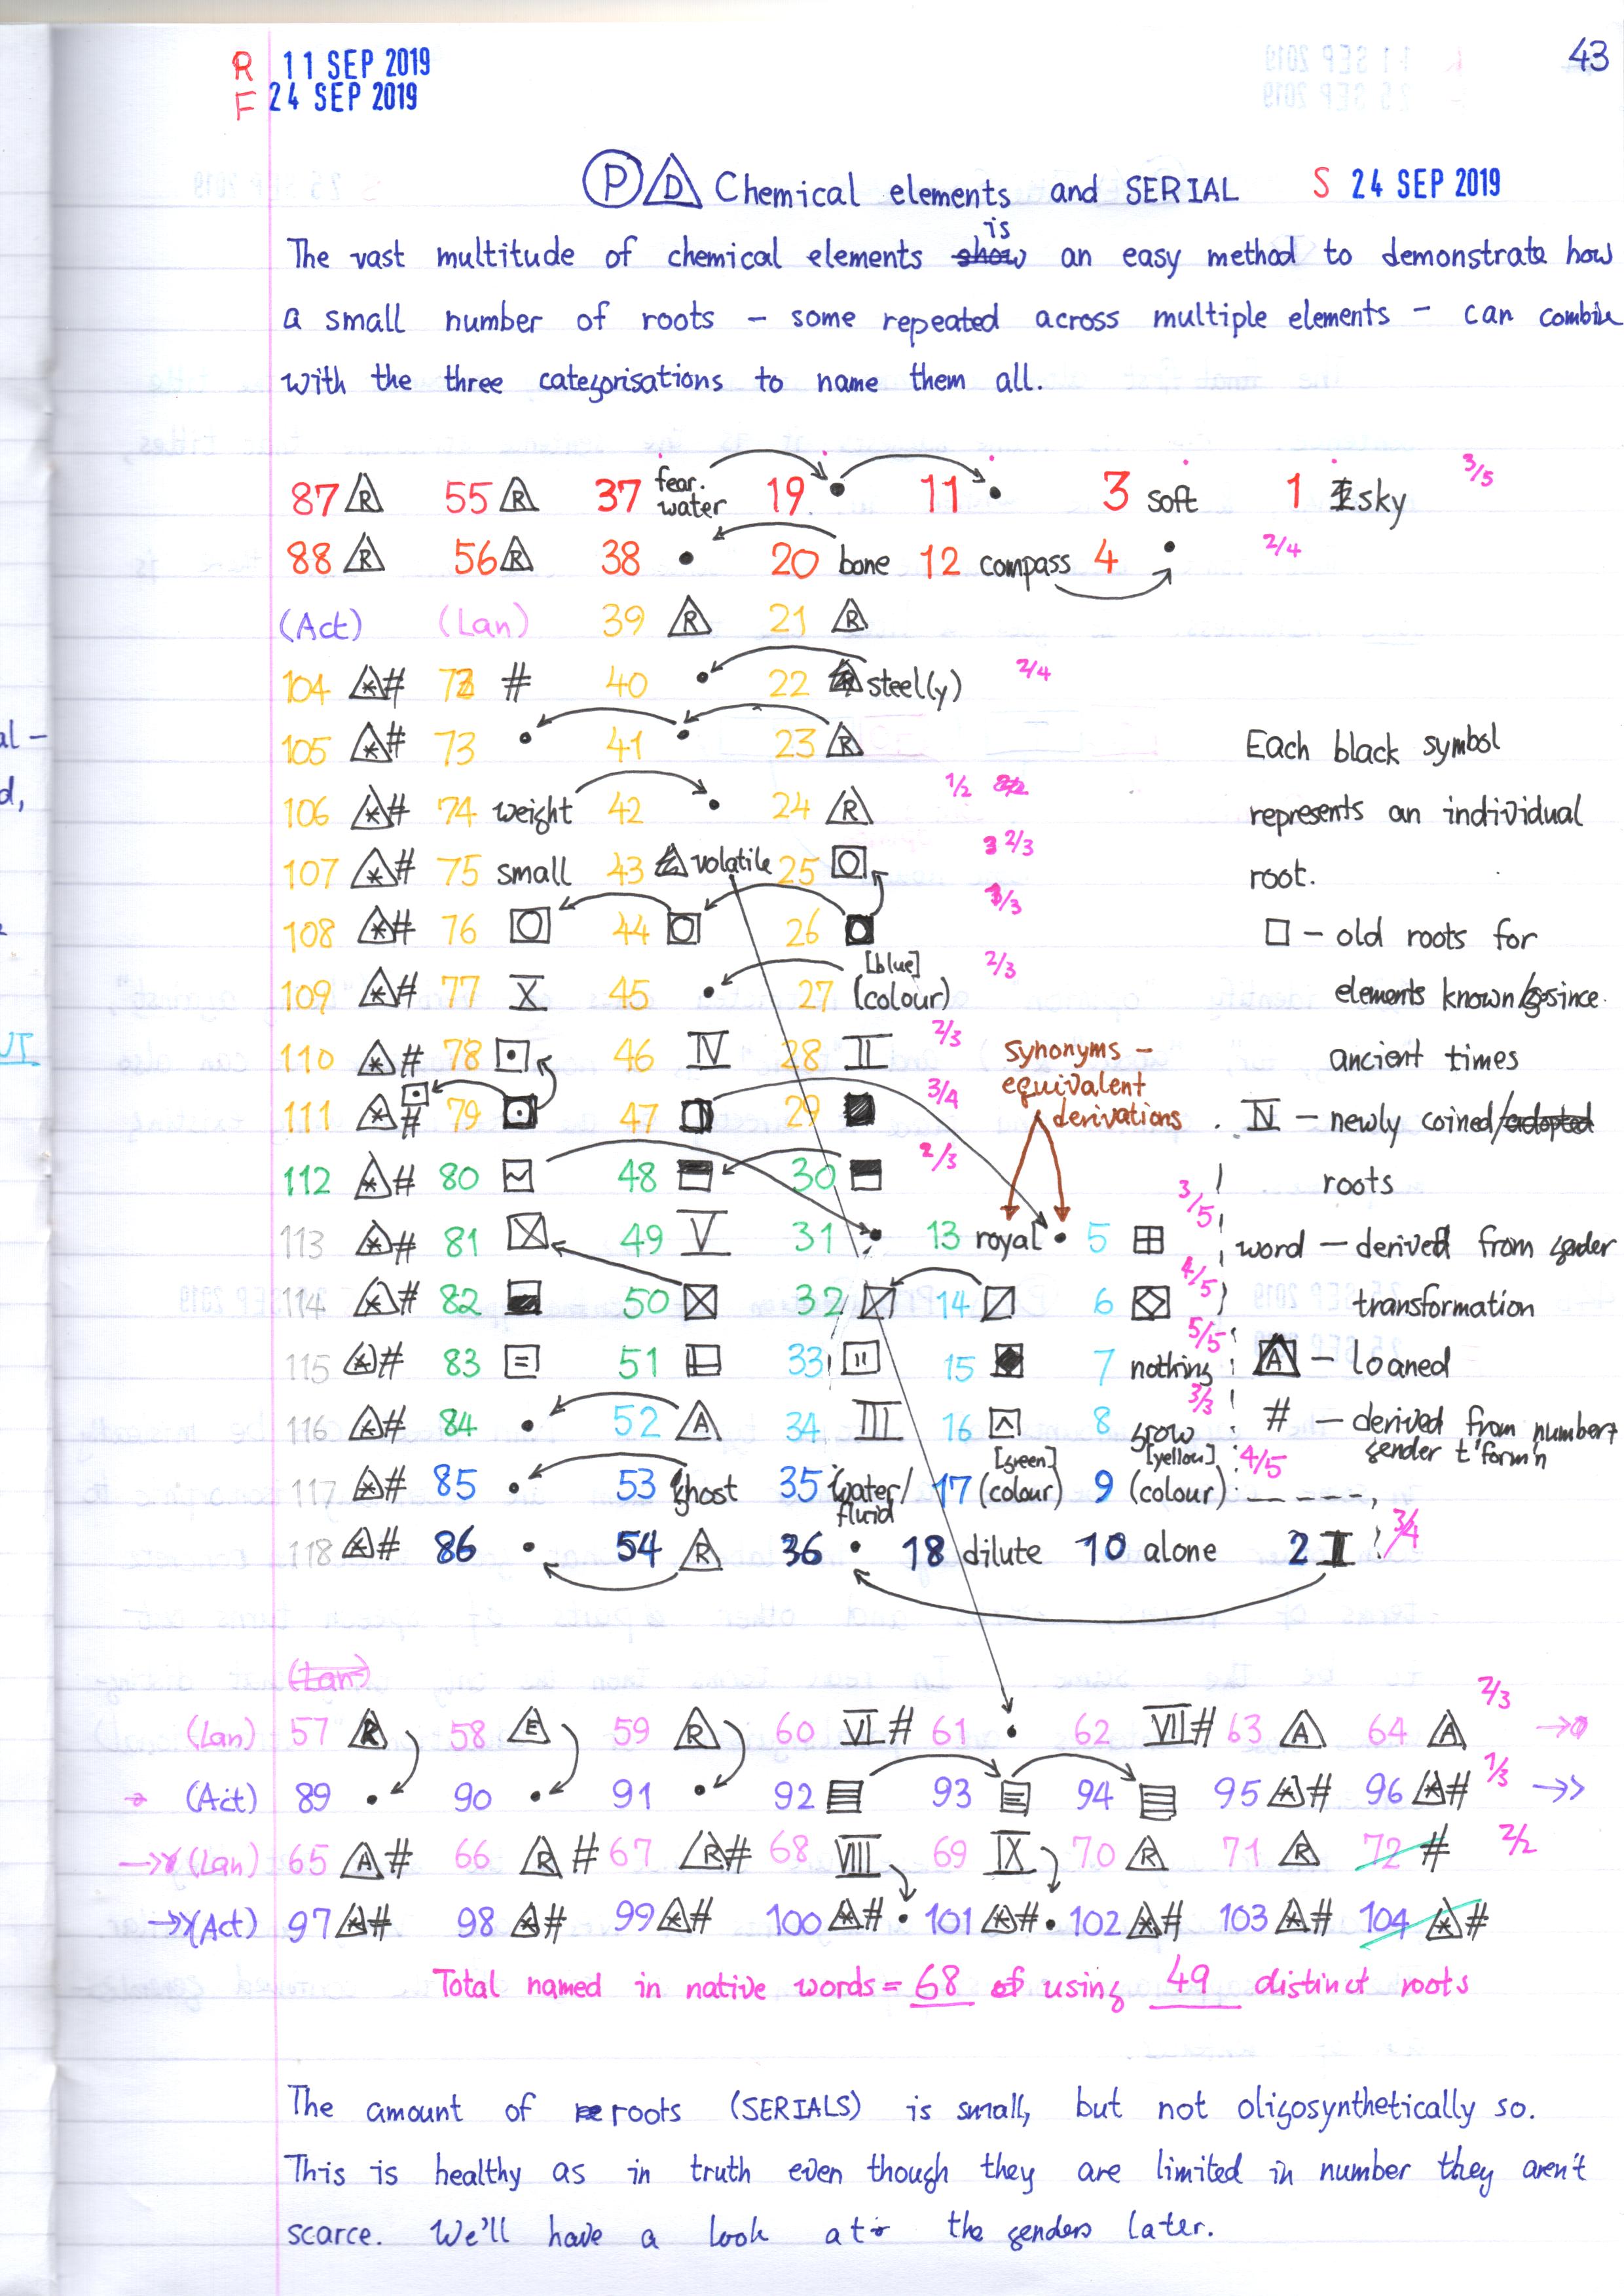 43
R 11 SEP 2019
F 24 SEP 2019
P D Chemical elements and SERIAL S 24 SEP 2019
is
The vast multitude of chemical elements show an easy method to demonstrate how
a small number of roots – some repeated across multiple elements – can combine
with the three categorisations to name them all.
87 R 55 R 37 fear. water 19 • 11 • 3 soft 1 sky 3/5
88 R 56 R 38 • 20 bone 12 compass 4 • 2/4
(Act) (Lan) 39 R 21 R
104 *# 72 # 40 • 22 steel(y) 2/4
105 *# 73 • 41 • 23 R
106 *# 74 weight 42 • 24 R 1/2
107 *# 75 small 43 volatile 25 2/3
108 *# 76 44 26 3/3
109 *# 77 X 45 • 27 [blue] (colour) 2/3
110 *# 78 46 IV 28 II 2/3
111 *# 79 47 29 3/4
112 *# 80 48 30 2/3
113 *# 81 49 V 31 • 13 royal • 5 3/5
114 *# 82 50 32 14 6 4/5
115 *# 83 51 33 15 7 nothing 5/5
116 *# 84 • 52 A 34 III 16 8 grow 3/3
117 *# 85 • 53 ghost 35 water/fluid 17 [green] (colour) 9 [yellow] (colour) 4/5
118 *# 86 • 54 R 36 • 18 dilute 10 alone 2 I 3/4
Synonyms –
equivalent
derivations
Each black symbol
represents an individual
root.
□ – old roots for
elements known/since
ancient times
IV – newly coined/adopted
roots
word – derived from gender
transformation
A – loaned
# – derived from number+
gender t'form'n
(Lan)
(Lan) 57 R 58 E 59 R 60 VI# 61 • 62 VII# 63 A 64 A 2/3
(Act) 89 • 90 • 91 • 92 93 94 95 *# 96 *# 1/3
(Lan) 65 A# 66 R# 67 R# 68 VIII 69 IX 70 R 71 R 72 # 2/2
(Act) 97 *# 98 *# 99 *# 100 *# • 101 *# • 102 *# 103 *# 104 *#
Total named in native words = 68 of using 49 distinct roots
The amount of roots (SERIALS) is small, but not oligosynthetically so.
This is healthy as in truth even though they are limited in number they aren't
scarce. We'll have a look at the genders later.